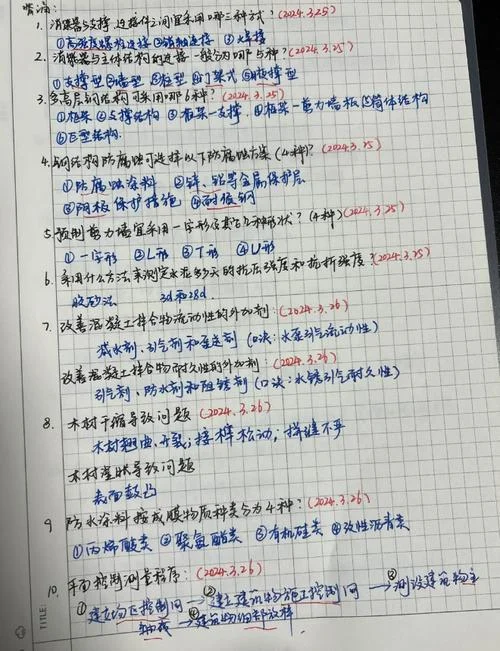 1. 消能器与支撑、连接件之间宜采用哪三种方式?(2024.3.25)
①高强度螺栓连接 ②销轴连接 ③焊接
2. 消能器与主体结构的连接一般分为哪5种?(2024.3.25)
①支撑型②墙型③柱型④门架式⑤腋撑型
3. 多高层钢结构可采用哪6种?(2024.3.25)
①框架②支撑结构③框架-支撑④框架-剪力墙板⑤筒体结构
⑥巨型结构.
4. 钢结构防腐蚀可选择以下防腐蚀方案(4种)?(2024.3.25)
①防腐蚀涂料 ②锌、铝等金属保护层
③阴极保护措施 ④耐候钢
5. 预制剪力墙宜采用一字形 几种形状?(4种)(2024.3.25)
①一字形 ②L形 ③T形 ④U形
6. 采用什么方法来测定水泥 天的抗压强度和抗折强度?(2024.3.25)
胶砂法 3d和28d.
7. 改善混凝土拌合物流动性的外加剂:(2024.3.26)
减水剂、引气剂和泵送剂(口诀:水泵引气流动性)
改善混凝土拌合物耐久性的外加剂:(2024.3.26)
引气剂、防水剂和阻锈剂(口诀:水锈引气耐久性)
8. 木材干缩导致问题(2024.3.26)
木材翘曲、开裂;接榫松动;拼缝不严
木材湿胀导致问题
表面鼓凸
9 防水涂料按成膜物质种类分为4种?(2024.3.26)
①丙烯酸类 ②聚氨酯类 ③有机硅类 ④改性沥青类
10. 平面控制测量程序:(2024.3.26)
①建立场区控制网→②建立建筑物施工控制网→③测设建筑物主
轴线→④建筑物细部放样
TITLE: